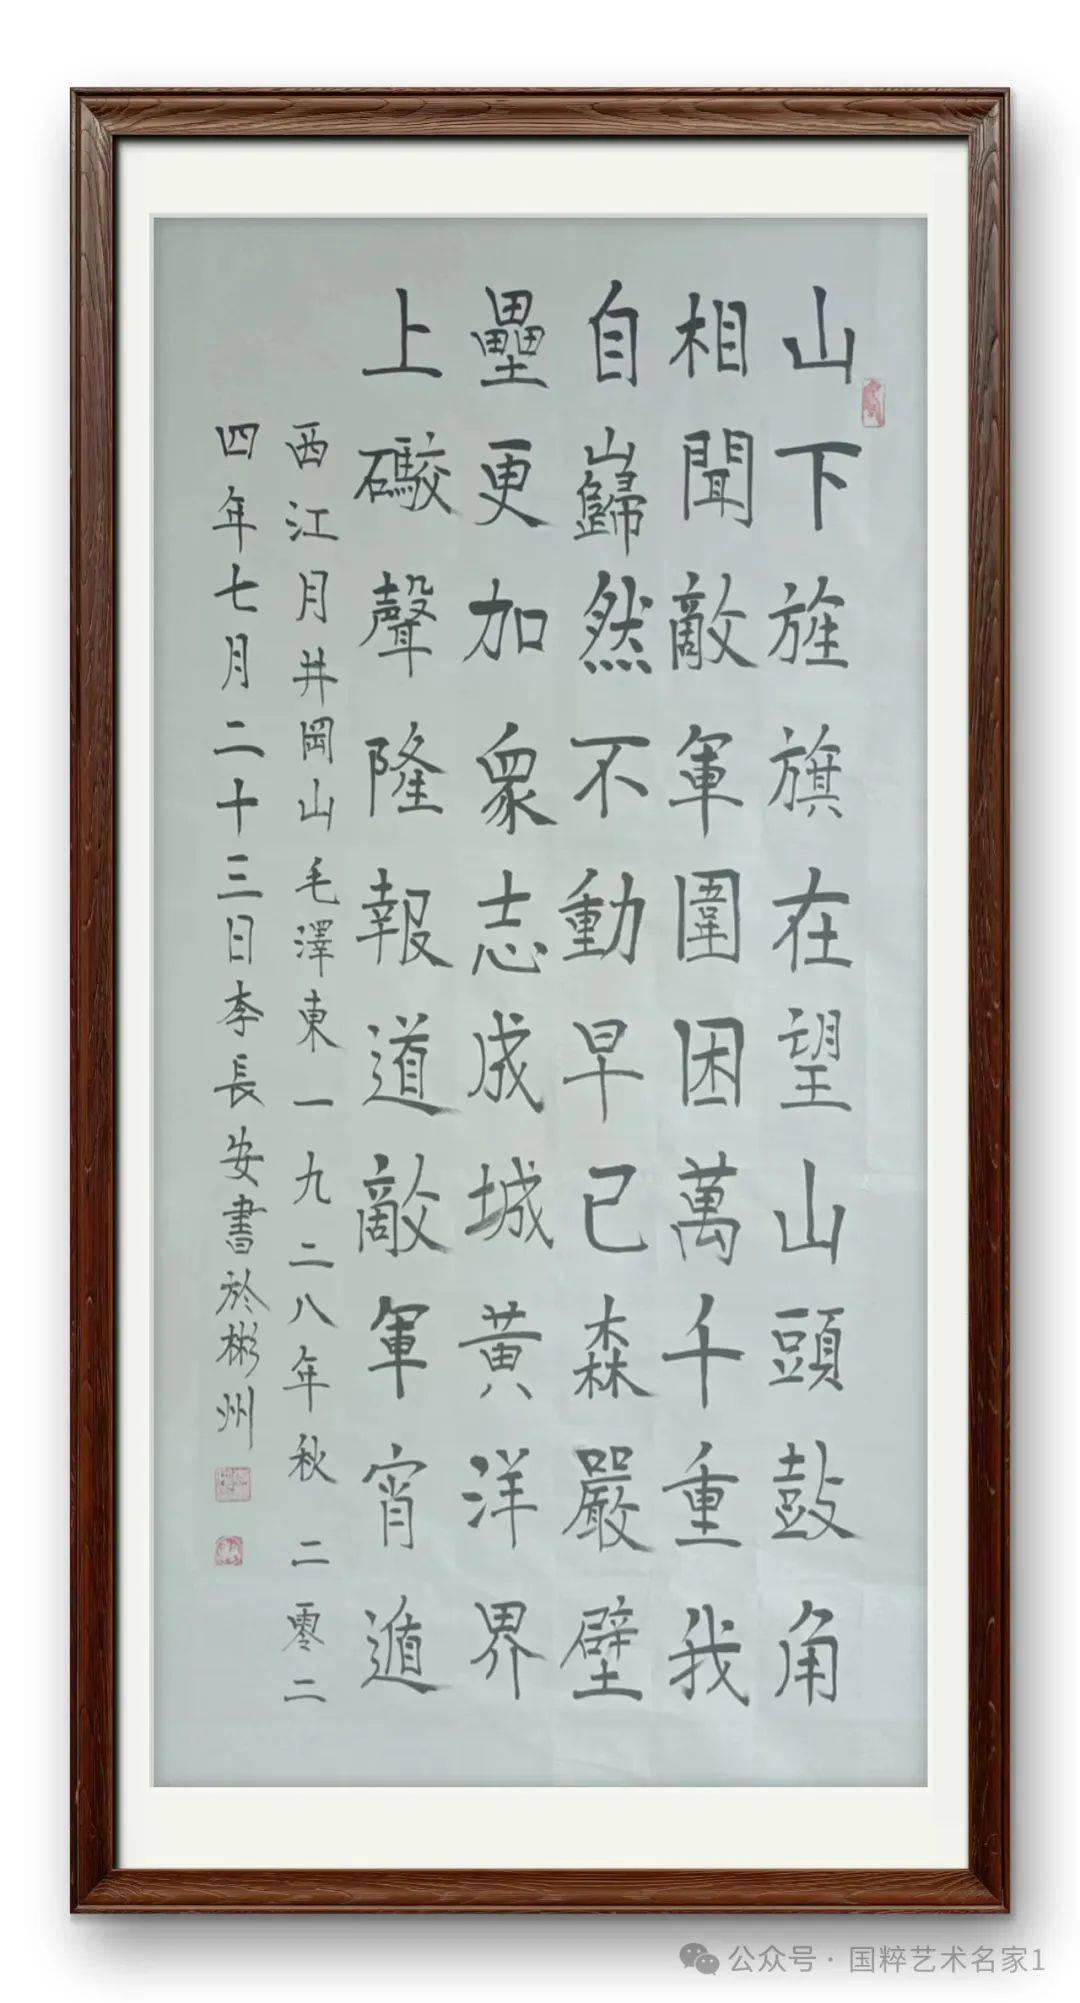 山下旌旗在望山頭鼓角
相聞敵軍圍困萬千重我
自巋然不動早已森嚴壁
壘更加衆志成城黃洋界
上礮聲隆報道敵軍宵遁
西江月井岡山毛澤東一九二八年秋 二零二
四年七月二十三日李長安書於彬州
公众号 · 国粹艺术名家1